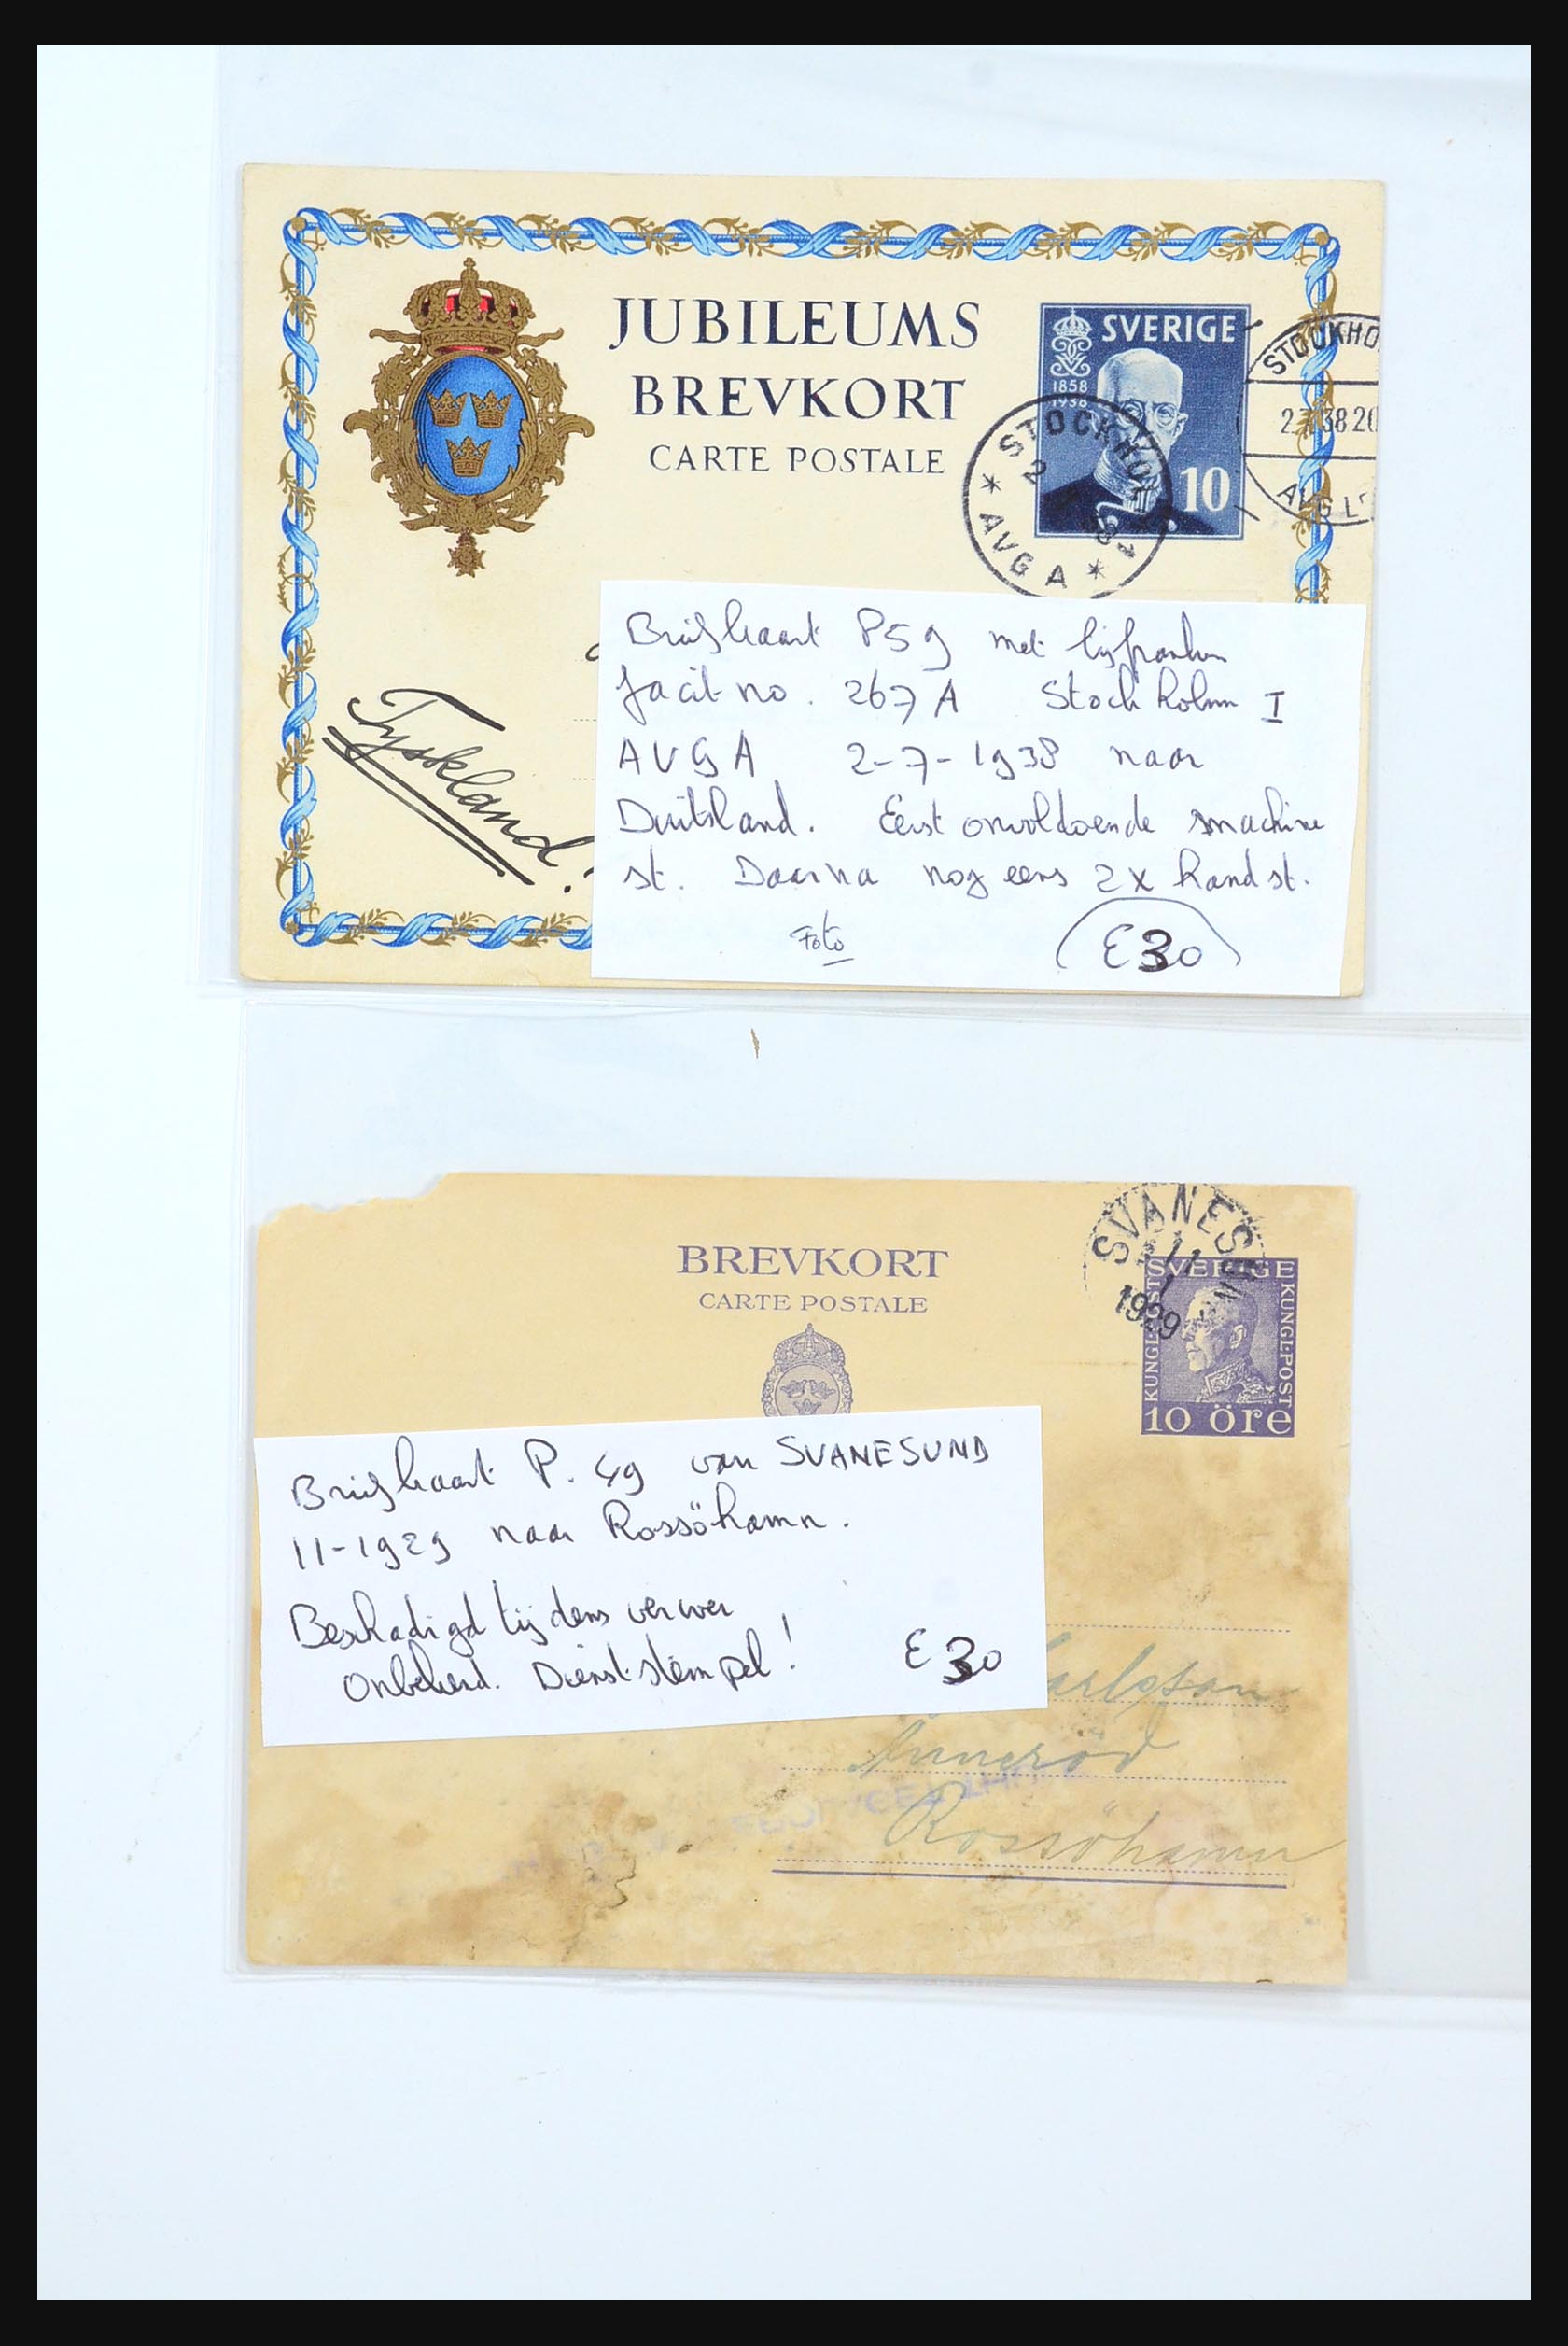 JUBILEUMS
BREVKORT
CARTE POSTALE
SVERIGE
1858
1938
10
STOCKHOL
2
AVG A
STOCKHO
2.7.38 20
AVG
Tyskland!
Briefkaart P59 met bijfranken
facit no. 267 A Stockholm I
AVGA 2-7-1938 naar
Duitsland. Eerst onvoldoende machine
st. Daarna nog eens 2x handst.
Foto
E30
BREVKORT
CARTE POSTALE
SVANESUN
11
1
1929
SVERIGE
KUNGL·POST
KUNGL·POST
10 öre
Briefkaart P. 49 van SVANESUND
11-1929 naar Rossöhamn.
Beschadigd tijdens verwer
Onbekend. Dienststempel!
E 30
Carlsson
Anneröd
Rossöhamn